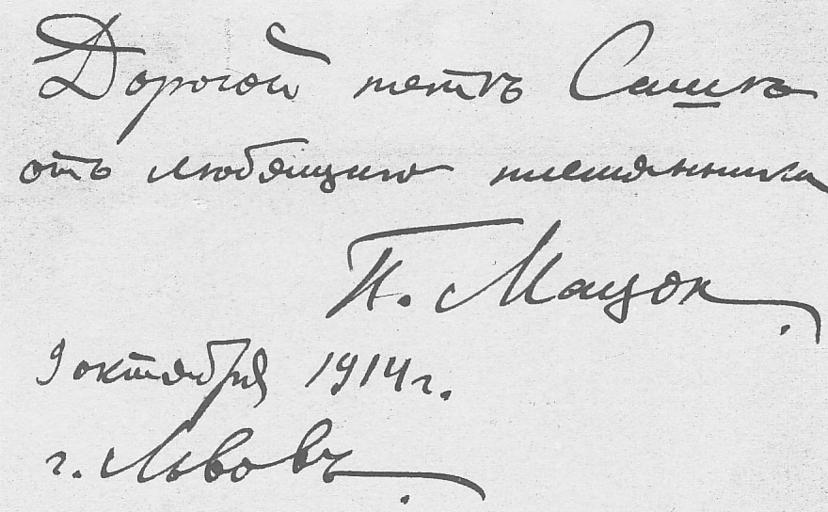 Дорогой тетѣ Сашѣ
отъ любящаго племянника
П. Мацок
9 октября 1914 г.
г. Львовъ